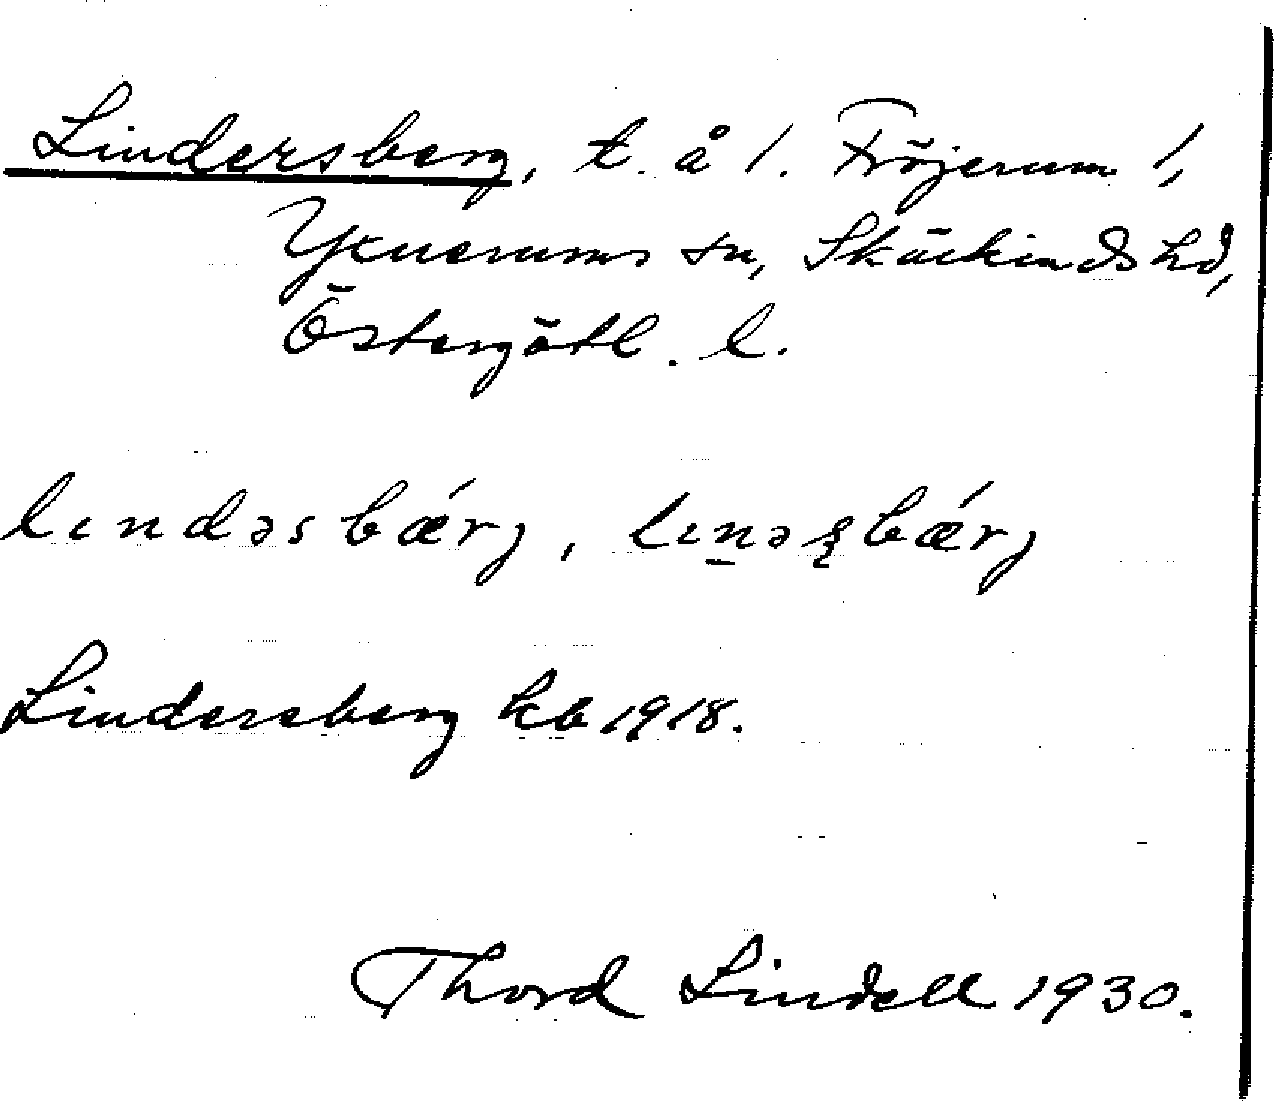 Lindersberg, t. å 1. Fröjerum 1,
Yxnerums sn, Skärkinds hd,
Östergötl. l.
lındəsbǽrj, lınəsbǽrj
Lindersberg kb 1918.
Thord Lindell 1930.